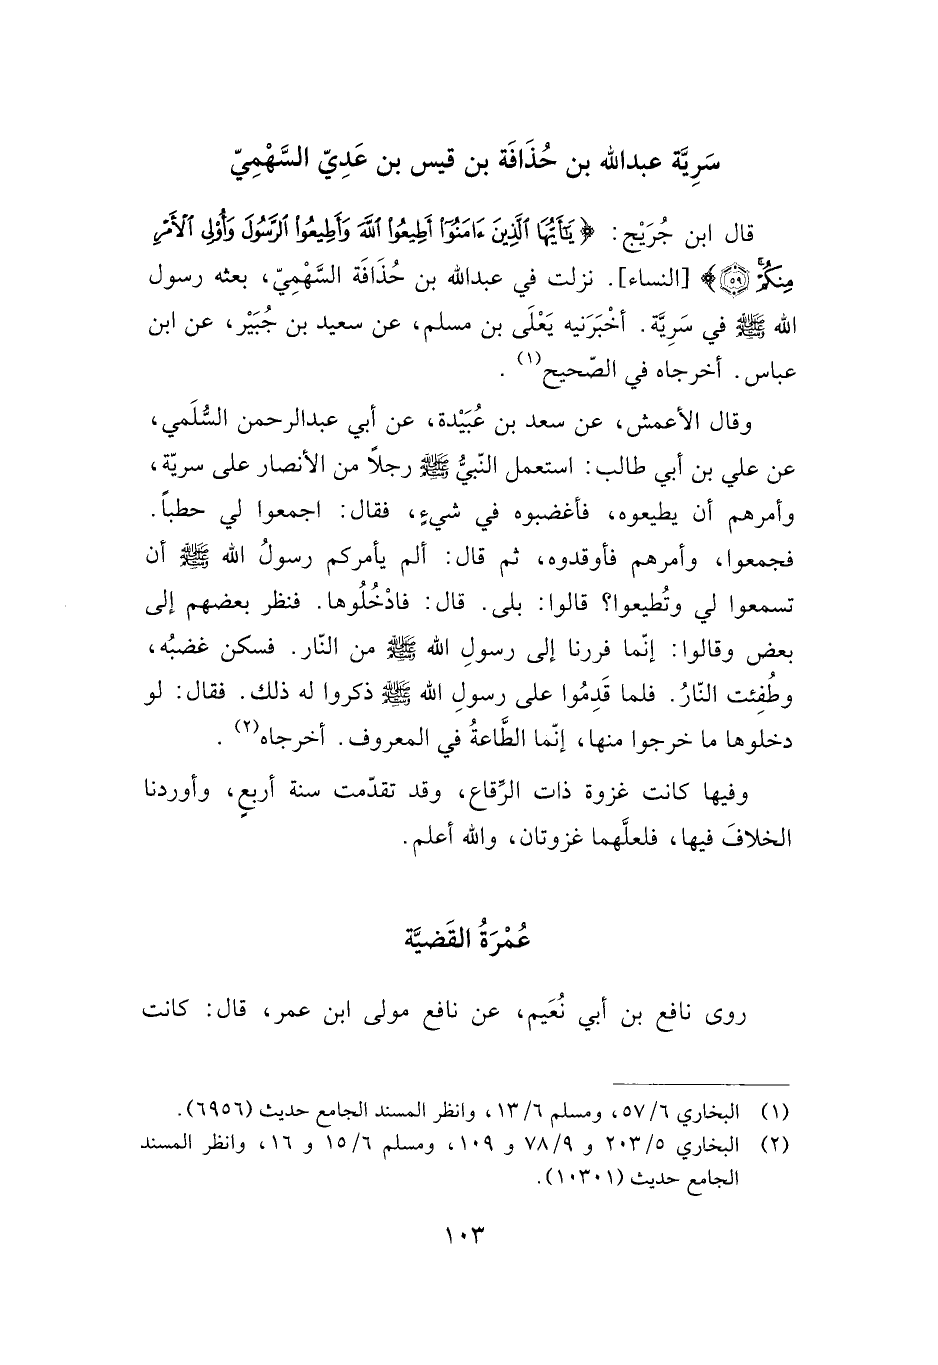 سَرِيَّة عبدالله بن حُذَافَة بن قيس بن عَدِيّ السَّهْمِيّ
قال ابن جُرَيْج: ﴿يَٰٓأَيُّهَا ٱلَّذِينَ ءَامَنُوٓاْ أَطِيعُواْ ٱللَّهَ وَأَطِيعُواْ ٱلرَّسُولَ وَأُوْلِي ٱلْأَمْرِ
مِنكُمْ ۖ ٥٩﴾ [النساء]. نزلت في عبدالله بن حُذَافَة السَّهْمِيّ، بعثه رسول
الله ﷺ في سَرِيَّة. أخْبَرَنيه يَعْلَى بن مسلم، عن سعيد بن جُبَيْر، عن ابن
عباس. أخرجاه في الصّحيح(١).
وقال الأعمش، عن سعد بن عُبَيْدة، عن أبي عبدالرحمن السُّلَمي،
عن علي بن أبي طالب: استعمل النّبيُّ ﷺ رجلاً من الأنصار على سريّة،
وأمرهم أن يطيعوه، فأغضبوه في شيءٍ، فقال: اجمعوا لي حطباً.
فجمعوا، وأمرهم فأوقدوه، ثم قال: ألم يأمركم رسولُ الله ﷺ أن
تسمعوا لي وتُطيعوا؟ قالوا: بلى. قال: فادْخُلُوها. فنظر بعضهم إلى
بعض وقالوا: إنّما فررنا إلى رسولِ الله ﷺ من النّار. فسكن غضبُه،
وطُفِئت النّارُ. فلما قَدِمُوا على رسولِ الله ﷺ ذكروا له ذلك. فقال: لو
دخلوها ما خرجوا منها، إنّما الطَّاعةُ في المعروف. أخرجاه(٢).
وفيها كانت غزوة ذات الرِّقاع، وقد تقدّمت سنة أربعٍ، وأوردنا
الخلافَ فيها، فلعلَّهما غزوتان، والله أعلم.
عُمْرَةُ القَضيَّة
روى نافع بن أبي نُعَيم، عن نافع مولى ابن عمر، قال: كانت
(١) البخاري ٥٧/٦، ومسلم ١٣/٦، وانظر المسند الجامع حديث (٦٩٥٦).
(٢) البخاري ٢٠٣/٥ و ٧٨/٩ و ١٠٩، ومسلم ١٥/٦ و ١٦، وانظر المسند
الجامع حديث (١٠٣٠١).
١٠٣